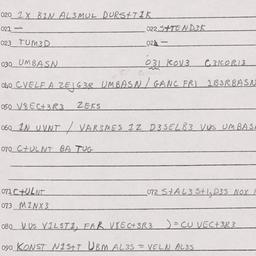 020 IX BIN ALSMUL DURSTIK
021 — 022 STTENDSK
023 TUM3D 024 —
030 UMBASN 031 KOV3 C3KOR13
040 CVELFA ZEJG3R UMBASN / GANC FRI 1B3RBASN
050 V8ECT3R3 ZEKS
060 IN UVNT / VAR3MES IZ D3SEL83 VUS UMBASN
070 CTULNT BA TUG
071 CTULNT 072 STAL3ST1, D3S NOX N
073 MINX3
080 VUS VILSTI, FAR V8ECT3R3 ) = CU VECT3R3
090 KONST NIST UBM AL3S = VELN AL3S